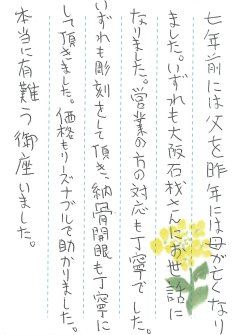 七年前には父を昨年には母が亡くなり
ました。いずれも大阪石材さんにお世話に
なりました。営業の方の対応も丁寧でした。
いずれも彫刻をして頂き、納骨開眼も丁寧に
して頂きました。価格もリーズナブルで助かりました。
本当に有難う御座いました。